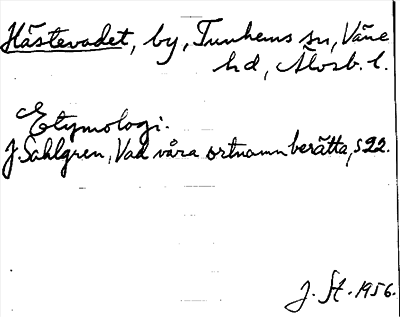 Hästevadet, by, Tunhems sn, Väne
hd, Älvsb. l.
Etymologi.
J. Sahlgren, Vad våra ortnamn berätta, s 22.
J. St. 1956.